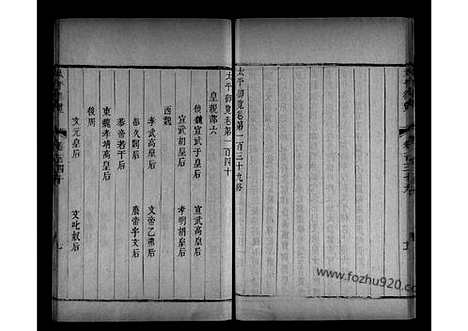 太平御覽卷第一百三十九終
太平御覽卷第一百四十
皇親部六
後魏宣武于皇后 宣武高皇后
宣武胡皇后 孝明胡皇后
西魏
孝武高皇后 文帝乙弗后
恭帝若干后
東魏孝靖高皇后
後周
文元皇后 文叱奴后
https://www.fozhu920.com